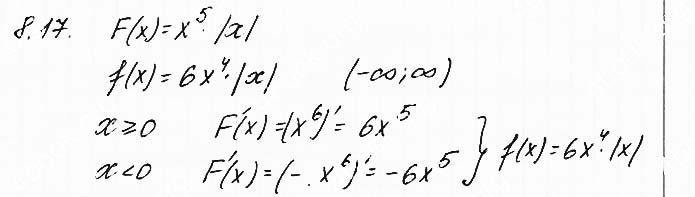 8.17. F(x)=x⁵·|x|
f(x)=6x⁴·|x| (-∞;∞)
x≥0 F'(x)=(x⁶)'=6x⁵
x<0 F'(x)=(-x⁶)'=-6x⁵ } f(x)=6x⁴·|x|